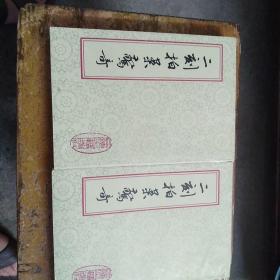 二刻拍案驚奇
二刻拍案驚奇